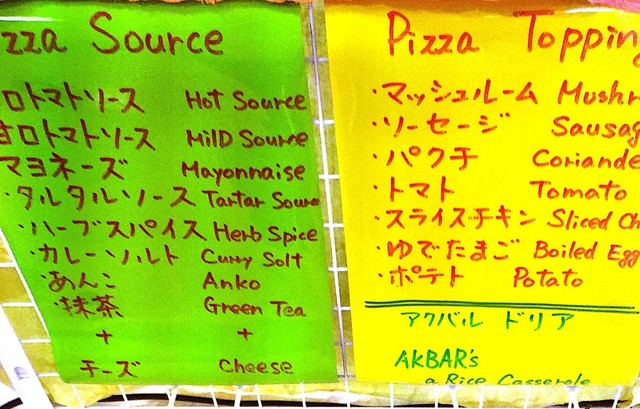 zza Source
ロトマトソース Hot Source
甘ロトマトソース MilD Sourse
マヨネーズ Mayonnaise
・タルタルソース Tartar Soure
・ハーブスパイス Herb Spice
・カレーソルト Curry Solt
・あんこ Anko
・抹茶 Green Tea
+ +
チーズ Cheese
Pizza Topping
・マッシュルーム Mushr
・ソーセージ Sausag
・パクチ Coriande
・トマト Tomato
・スライスチキン Sliced Ch
・ゆでたまご Boiled Egg
・ポテト Potato
アクバル ドリア
AKBAR's
a Rice Casserole